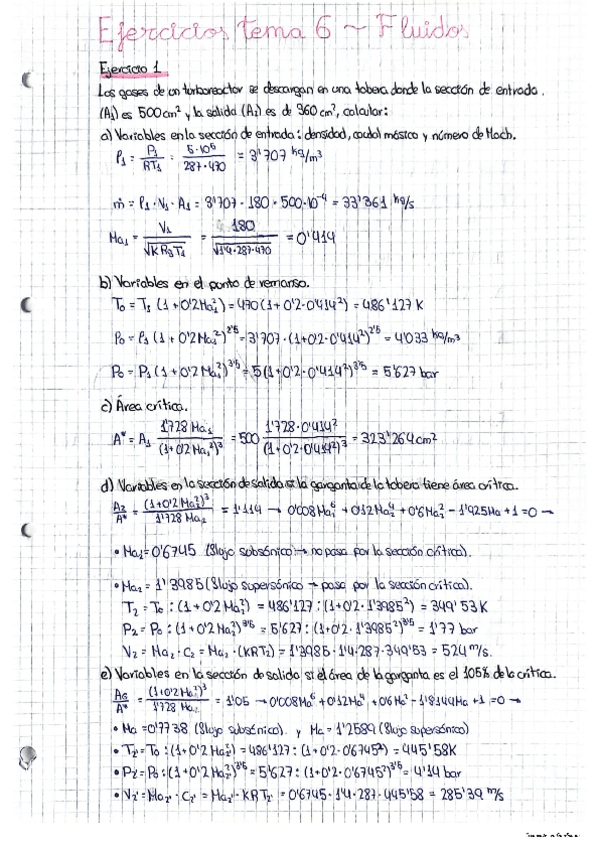 Ejercicios tema 6 ~ Fluidos
Ejercicio 1
Los gases de un turboreactor se descargan en una tobera donde la sección de entrada
(A₁) es 500 cm² y la salida (A₂) es de 360 cm², calcular:
a) Variables en la sección de entrada: densidad, caudal másico y número de Mach.
ρ₁ = P₁/RT₁ = 5·10⁵/287·470 = 3'707 kg/m³
ṁ = ρ₁·V₁·A₁ = 3'707·180·500·10⁻⁴ = 33'361 kg/s
Ma₁ = V₁/√KRgT₁ = 180/√1'4·287·470 = 0'414
b) Variables en el punto de remanso.
T₀ = T₁ (1+0'2Ma₁²) = 470(1+0'2·0'414²) = 486'127 K
ρ₀ = ρ₁ (1+0'2Ma₁²)^2'5 = 3'707·(1+0'2·0'414²)^2'5 = 4'033 kg/m³
P₀ = P₁ (1+0'2Ma₁²)^3'5 = 5(1+0'2·0'414²)^3'5 = 5'627 bar
c) Área crítica.
A* = A₁ 1'728 Ma₁/(1+0'2 Ma₁²)³ = 500 1'728·0'414²/(1+0'2·0'414²)³ = 323'264 cm²
d) Variables en la sección de salida si la garganta de la tobera tiene área crítica.
A₂/A* = (1+0'2Ma₂²)³/1'728 Ma₂ = 1'114 → 0'008Ma₂⁶ + 0'12Ma₂⁴ + 0'6Ma₂² - 1'925Ma + 1 = 0 →
• Ma₂ = 0'6745 (flujo subsónico) → no pasa por la sección crítica).
• Ma₂ = 1'3985 (flujo supersónico → pasa por la sección crítica).
T₂ = T₀ : (1+0'2 Ma₂²) = 486'127 : (1+0'2·1'3985²) = 349'53 K
P₂ = P₀ : (1+0'2 Ma₂²)^3'5 = 5'627 : (1+0'2·1'3985²)^3'5 = 1'77 bar
V₂ = Ma₂·C₂ = Ma₂·(KRT₂) = 1'3985·1'4·287·349'53 = 524 m/s.
e) Variables en la sección de salida si el área de la garganta es el 105% de la crítica.
A₆/A* = (1+0'2Ma₂²)³/1'728 Ma₂ = 1'05 → 0'008Ma⁶ + 0'12Ma⁴ + 0'6Ma² - 1'8144Ma + 1 = 0 →
• Ma = 0'7738 (flujo subsónico). y Ma = 1'2589 (flujo supersónico)
• T₂' = T₀ : (1+0'2 Ma₂²) = 486'127 : (1+0'2·0'6745²) = 445'58K
• P₂' = P₀ : (1+0'2 Ma₂²)^3'5 = 5'627 : (1+0'2·0'6745²)^3'5 = 4'14 bar
• V₂' = Ma₂'·C₂' = Ma₂'·KRT₂' = 0'6745·1'4·287·445'58 = 285'39 m/s